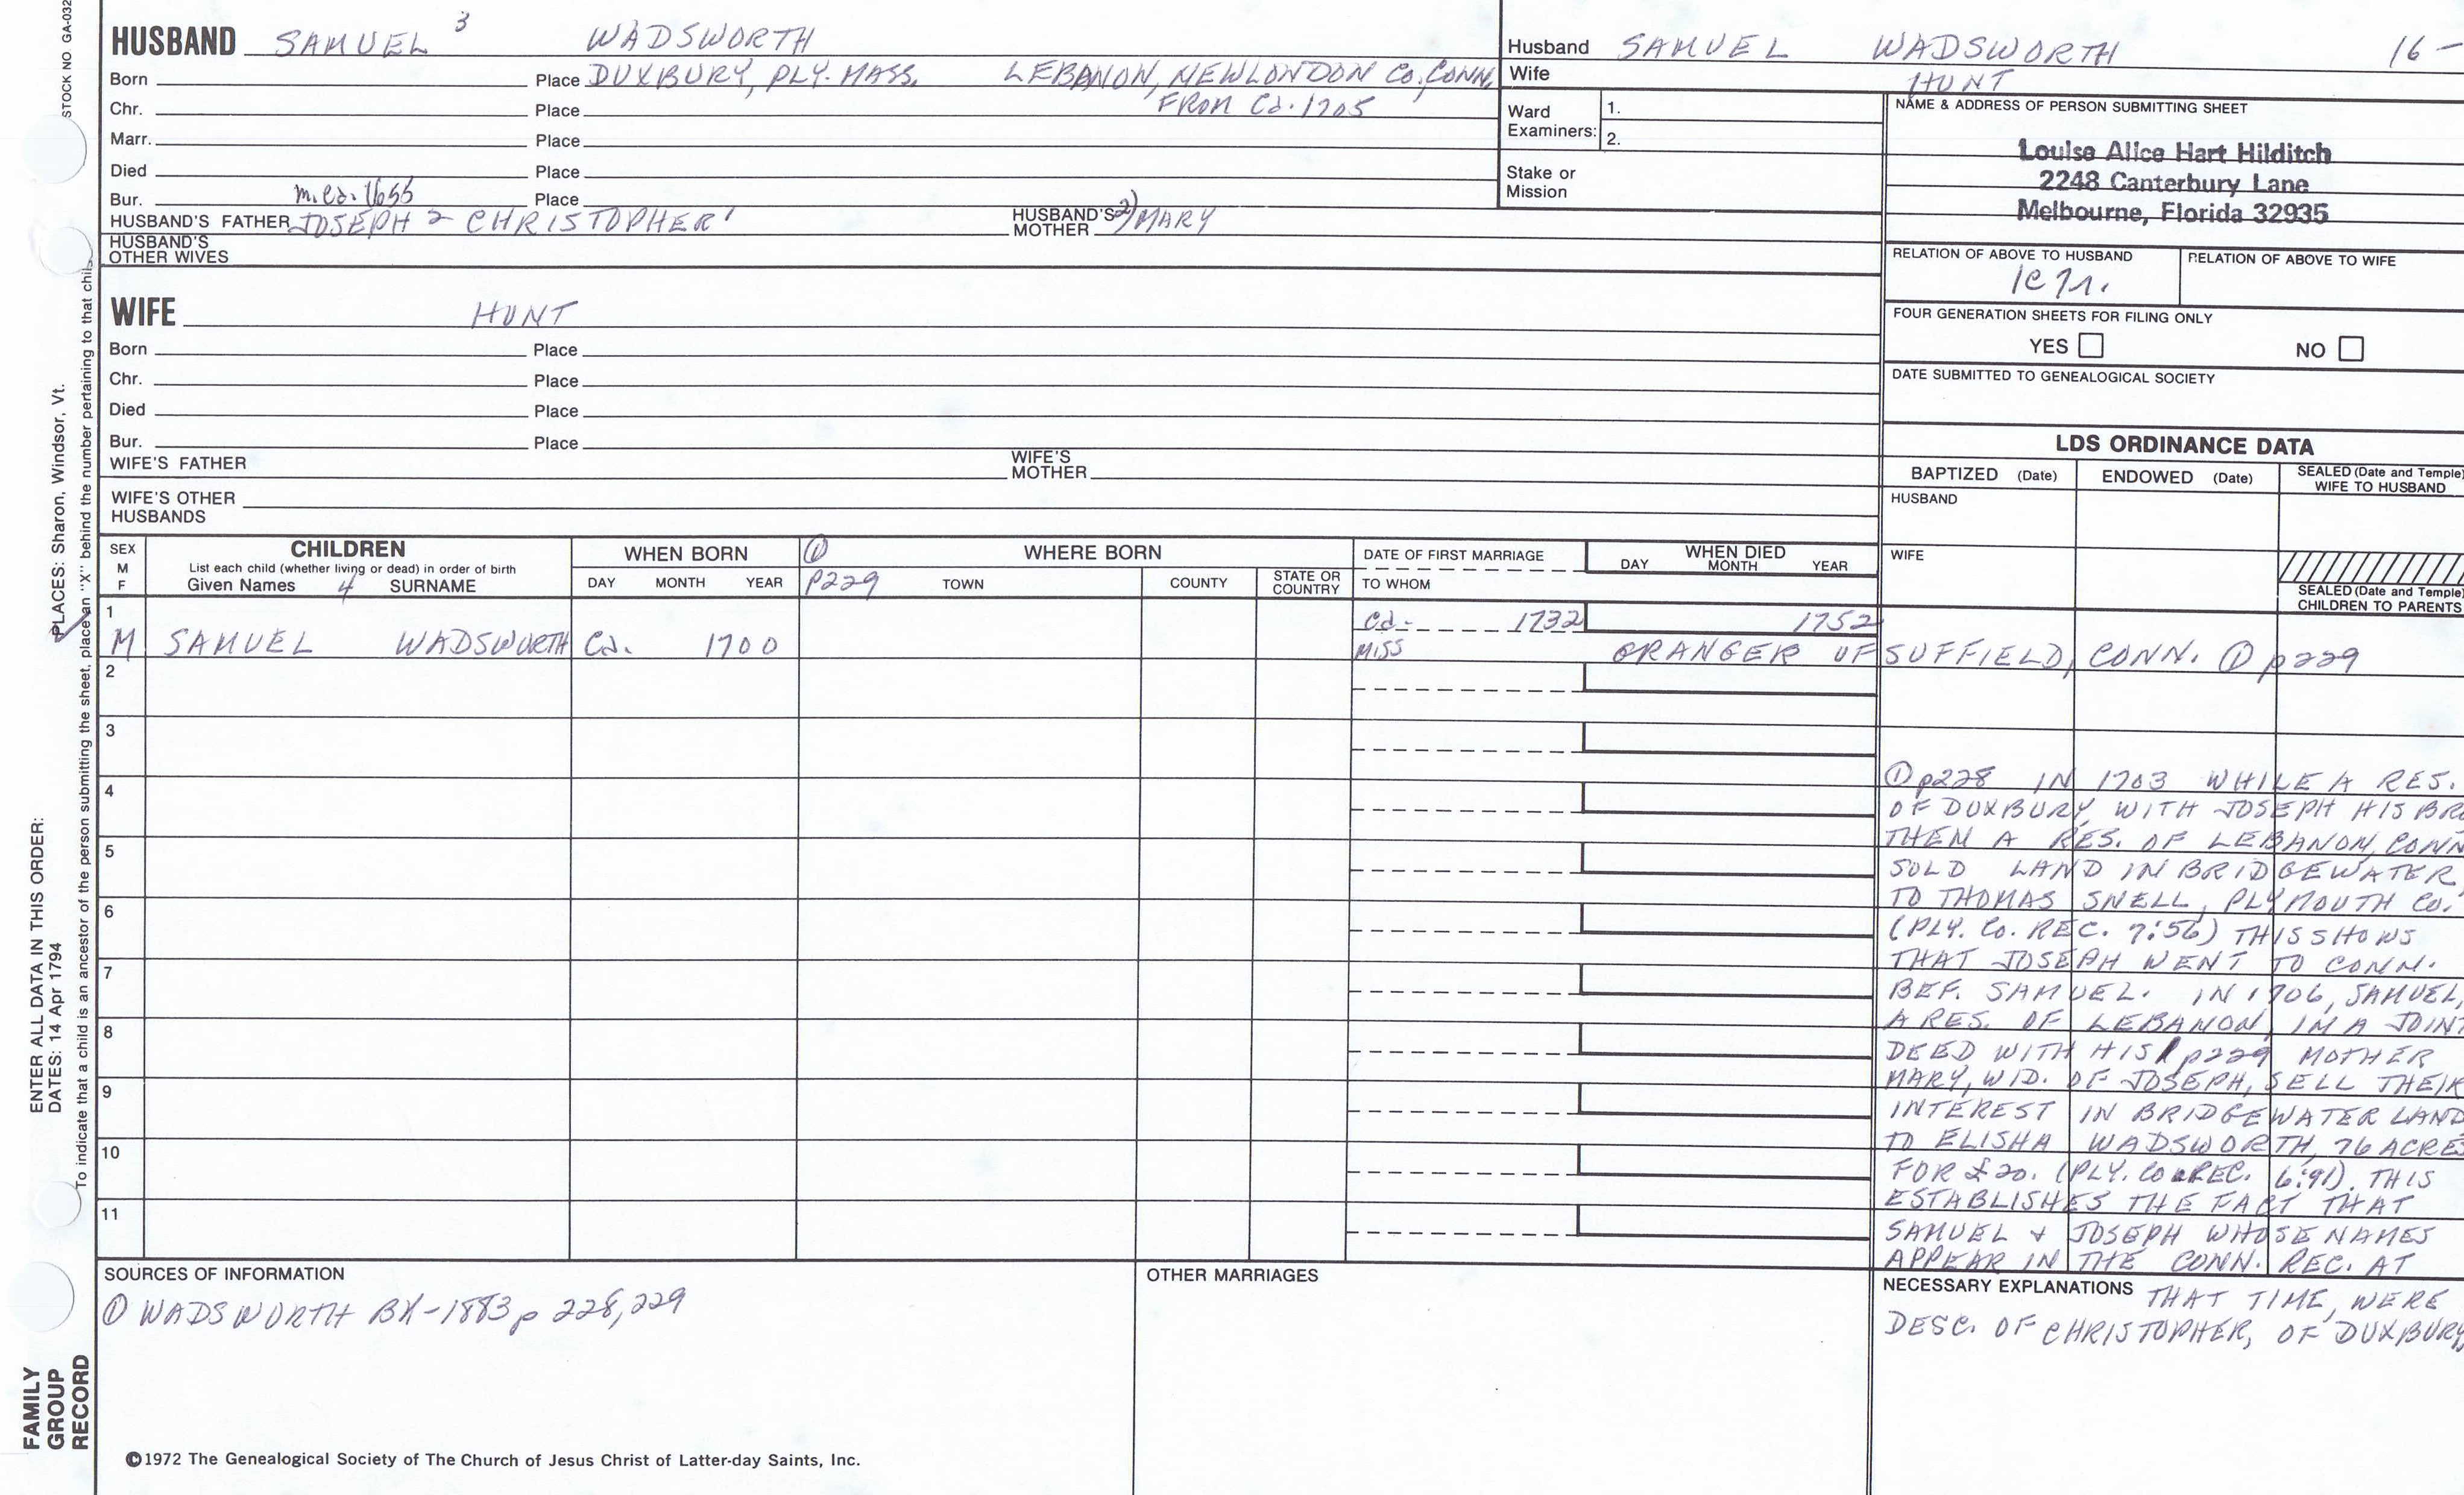 STOCK NO. GA-032
HUSBAND SAMUEL 3 WADSWORTH
Born Place DUXBURY, PLY. MASS. LEBANON, NEWLONDON CO, CONN.
Chr. Place FROM Cd. 1705
Marr. Place
Died Place
Bur. m.cd. 1655 Place
HUSBAND'S FATHER JOSEPH 2 CHRISTOPHER 1 HUSBAND'S MOTHER 2) MARY
HUSBAND'S OTHER WIVES
WIFE HUNT
Born Place
Chr. Place
Died Place
Bur. Place
WIFE'S FATHER WIFE'S MOTHER
WIFE'S OTHER HUSBANDS
Husband SAMUEL WADSWORTH 16-
Wife HUNT
Ward Examiners: 1.
2.
Stake or Mission
NAME & ADDRESS OF PERSON SUBMITTING SHEET
Louise Alice Hart Hilditch
2248 Canterbury Lane
Melbourne, Florida 32935
RELATION OF ABOVE TO HUSBAND RELATION OF ABOVE TO WIFE
FOUR GENERATION SHEETS FOR FILING ONLY
YES NO
DATE SUBMITTED TO GENEALOGICAL SOCIETY
LDS ORDINANCE DATA
BAPTIZED (Date) ENDOWED (Date) SEALED (Date and Temple) WIFE TO HUSBAND
HUSBAND
WIFE
SEALED (Date and Temple) CHILDREN TO PARENTS
SEX M F CHILDREN
List each child (whether living or dead) in order of birth
Given Names 4 SURNAME
WHEN BORN
DAY MONTH YEAR
① WHERE BORN
P229 TOWN COUNTY STATE OR COUNTRY
DATE OF FIRST MARRIAGE
TO WHOM
WHEN DIED
DAY MONTH YEAR
1 Cd. 1732 1752
M SAMUEL WADSWORTH Cd. 1700 MISS GRANGER OF SUFFIELD, CONN. ① p229
2
3
4
5
6
7
8
9
10
11
① p228 IN 1703 WHILE A RES.
OF DUXBURY, WITH JOSEPH HIS BRO
THEN A RES. OF LEBANON, CONN
SOLD LAND IN BRIDGEWATER,
TO THOMAS SNELL, PLYMOUTH CO.
(PLY. CO. REC. 7:56) THIS SHOWS
THAT JOSEPH WENT TO CONN.
BEF. SAMUEL. IN 1706, SAMUEL,
A RES. OF LEBANON, IN A JOINT
DEED WITH HIS p229 MOTHER
MARY, WID. OF JOSEPH, SELL THEIR
INTEREST IN BRIDGEWATER LAND
TO ELISHA WADSWORTH, 76 ACRES
FOR £20. (PLY. CO REC. 6:91). THIS
ESTABLISHES THE FACT THAT
SAMUEL + JOSEPH WHOSE NAMES
APPEAR IN THE CONN. REC. AT
NECESSARY EXPLANATIONS THAT TIME, WERE
DESC. OF CHRISTOPHER, OF DUXBURY,
SOURCES OF INFORMATION
① WADSWORTH BK-1883 p 228,229
OTHER MARRIAGES
©1972 The Genealogical Society of The Church of Jesus Christ of Latter-day Saints, Inc.
FAMILY
GROUP
RECORD
ENTER ALL DATA IN THIS ORDER:
DATES: 14 Apr 1794
PLACES: Sharon, Windsor, Vt.
To indicate that a child is an ancestor of the person submitting the sheet, place an "X" behind the number pertaining to that child.